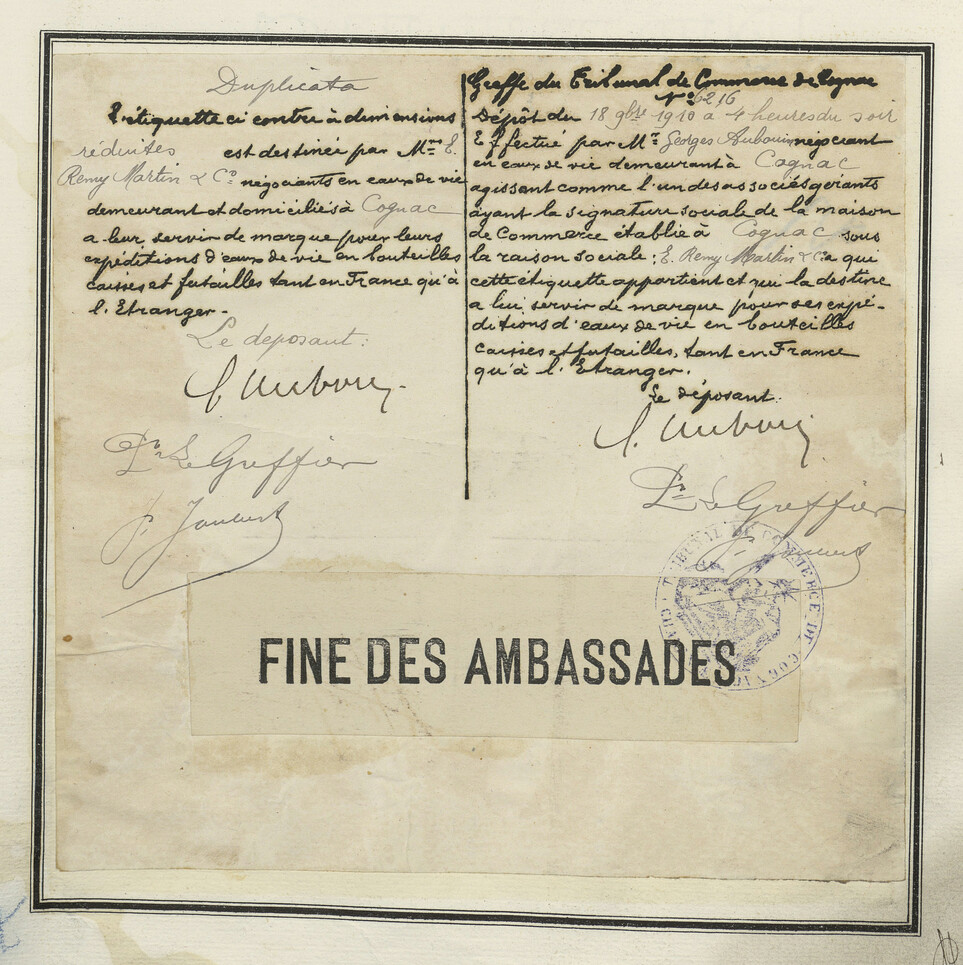 Duplicata
L'étiquette ci contre à dimensions
réduites est destinée par Mrs E.
Remy Martin & Co négociants en eaux de vie
demeurant et domiciliés à Cognac
a leur servir de marque pour leurs
expéditions d'eaux de vie en bouteilles
caisses et futailles tant en France qu'à
l'Etranger.
Le deposant:
G. Aubouin
Pr Le Greffier
J. Joubert
Greffe du Tribunal de Commerce de Cognac
No 6216
Dépôt du 18 9bre 1910 à 4 heures du soir
Effectué par Mr Georges Aubouin négociant
en eaux de vie demeurant à Cognac
agissant comme l'un des associés gérants
ayant la signature sociale de la maison
de Commerce établie à Cognac sous
la raison sociale: E. Remy Martin & Cie qui
cette étiquette appartient et qui la destine
a lui servir de marque pour ses expé-
ditions d'eaux de vie en bouteilles
caisses et futailles, tant en France
qu'à l'Etranger.
Le déposant:
G. Aubouin
Pr Le Greffier
J. Joubert
TRIBUNAL DE COMMERCE DE COGNAC
FINE DES AMBASSADES